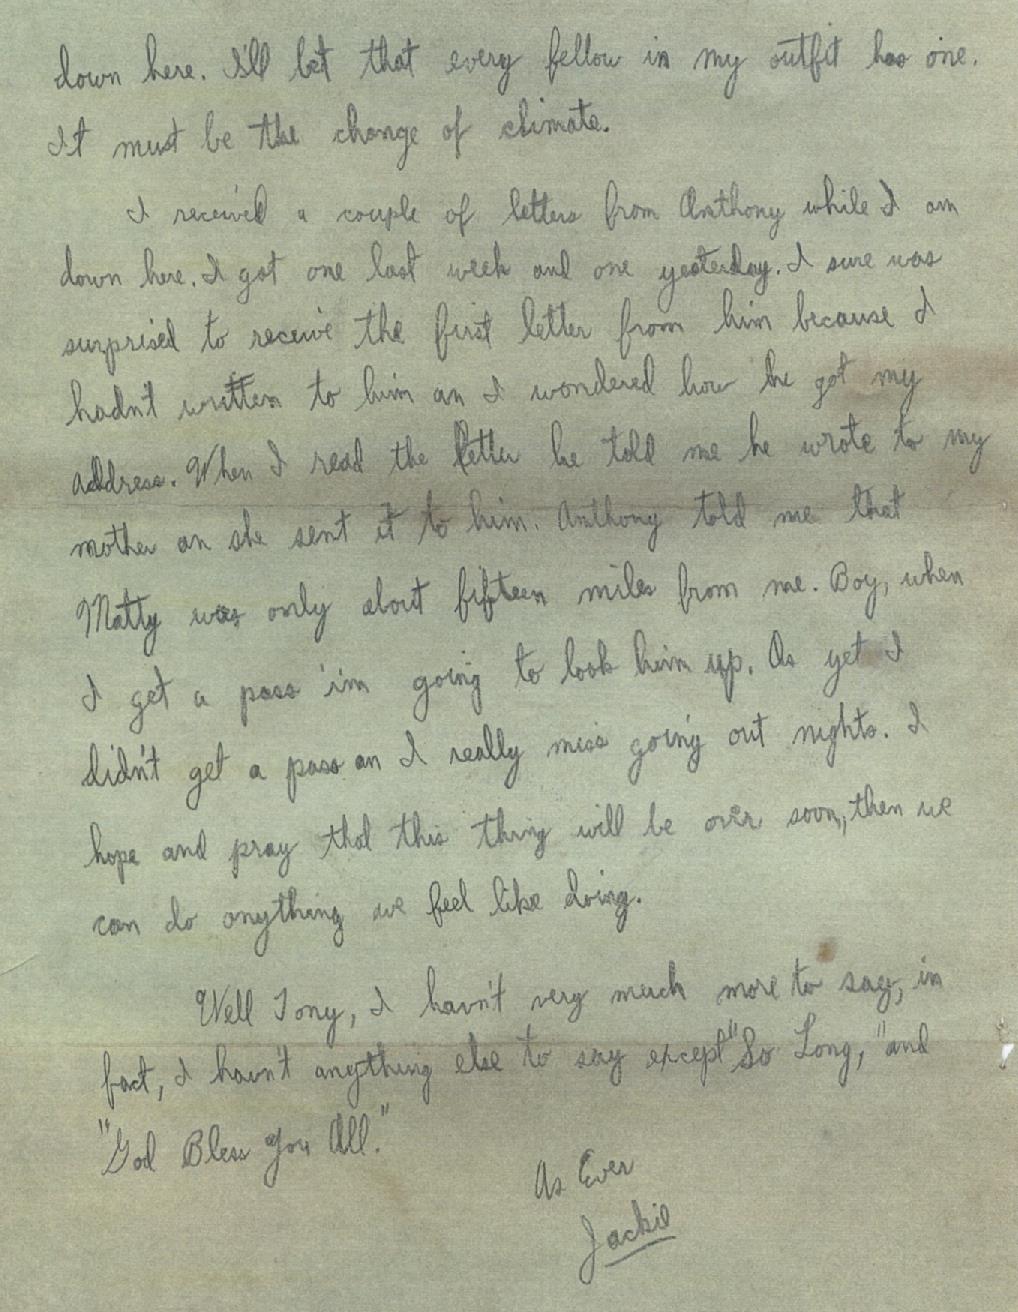 down here. I'll bet that every fellow in my outfit has one.
It must be the change of climate.
I received a couple of letters from Anthony while I am
down here. I got one last week and one yesterday. I sure was
surprised to receive the first letter from him because I
hadn't written to him an I wondered how he got my
address. When I read the letter he told me he wrote to my
mother an she sent it to him. Anthony told me that
Matty was only about fifteen miles from me. Boy, when
I get a pass i'm going to look him up. As yet I
didn't get a pass an I really miss going out nights. I
hope and pray that this thing will be over soon, then we
can do anything we feel like doing.
Well Tony, I havn't very much more to say, in
fact, I havn't anything else to say except "So Long," and
"God Bless You All."
As Ever
Jackie